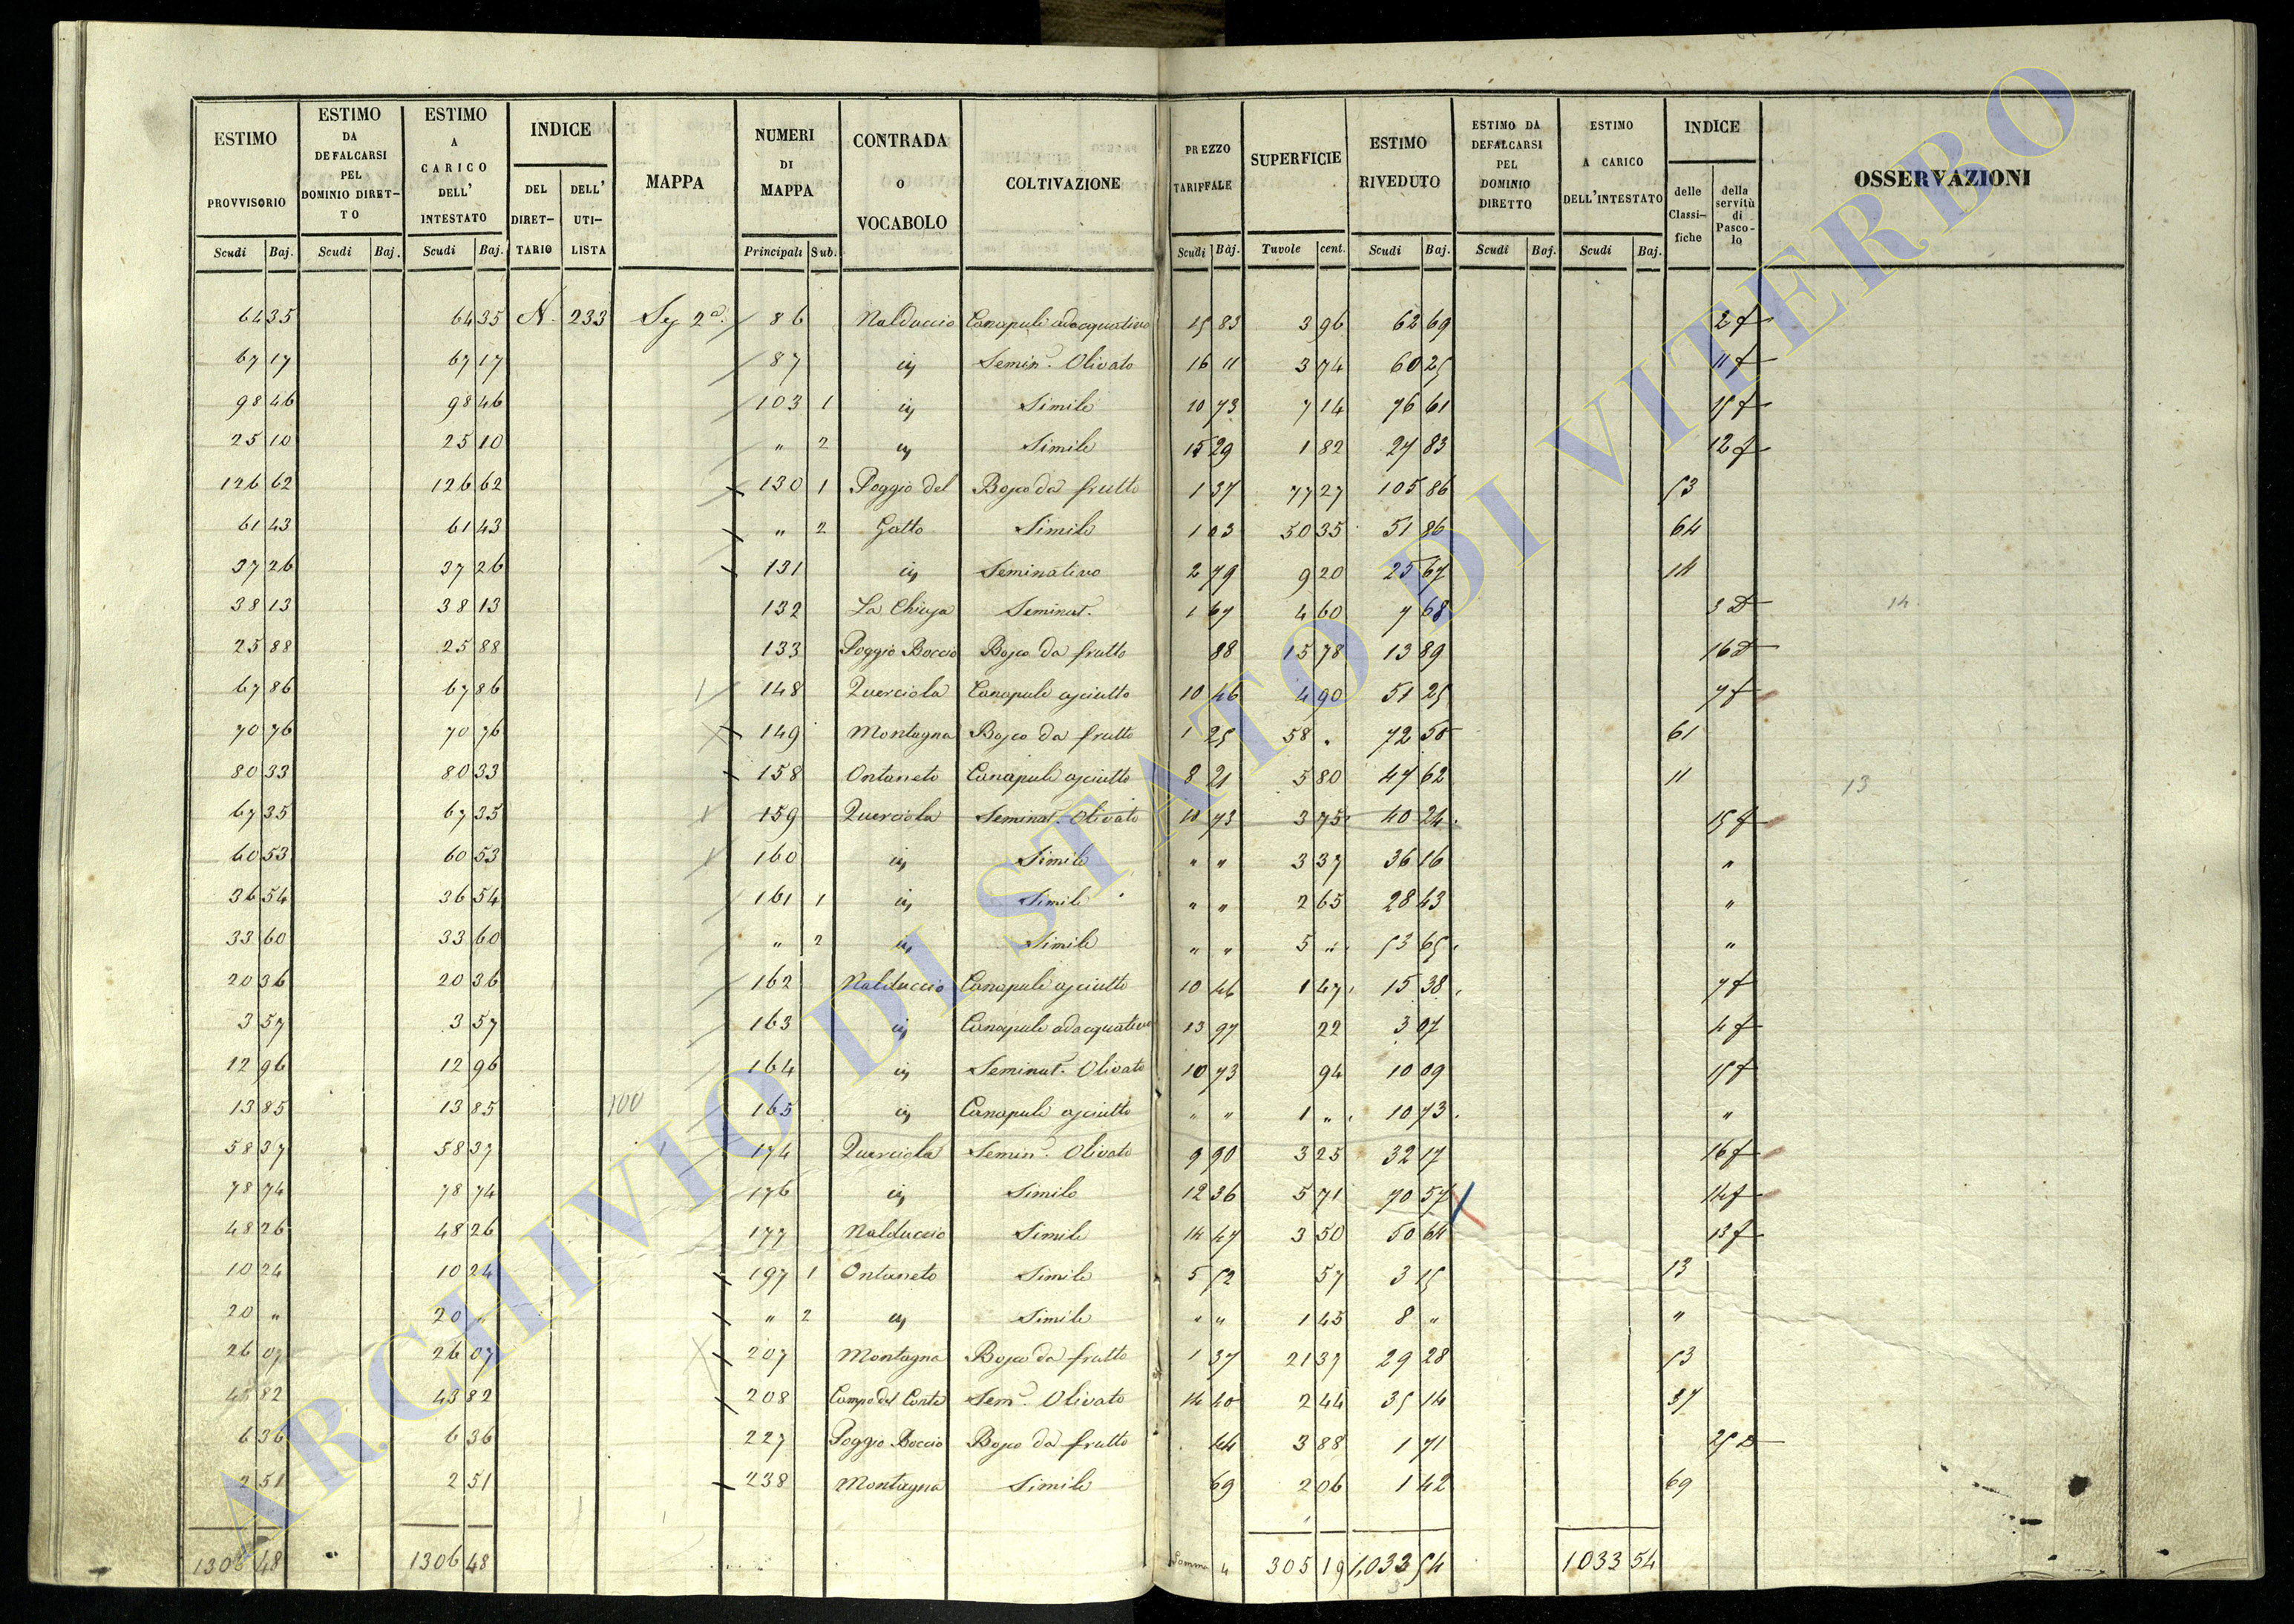 ESTIMO PROVVISORIO | ESTIMO DA DEFALCARSI PEL DOMINIO DIRETTO | ESTIMO A CARICO DELL' INTESTATO | INDICE DEL DIRETTARIO | DELL' UTILISTA | MAPPA | NUMERI DI MAPPA | CONTRADA O VOCABOLO | COLTIVAZIONE | PREZZO TARIFFALE | SUPERFICIE | ESTIMO RIVEDUTO | ESTIMO DA DEFALCARSI PEL DOMINIO DIRETTO | ESTIMO A CARICO DELL'INTESTATO | INDICE delle Classifiche | della servitù di Pascolo | OSSERVAZIONI
Scudi Baj. | Scudi Baj. | Scudi Baj. | Principali Sub. | Scudi Baj. | Tavole cent. | Scudi Baj. | Scudi Baj. | Scudi Baj.
64 35 | 64 35 | N. 233 | Sez 2a. | 86 | Nalduccio | Canapule adacquativo | 15 83 | 3 96 | 62 69 | 2 f
67 17 | 67 17 | 87 | id | Semin. Olivato | 16 11 | 3 74 | 60 25 | 11 f
98 46 | 98 46 | 103 1 | id | Simile | 10 73 | 7 14 | 76 61 | 15 f
25 10 | 25 10 | " 2 | id | Simile | 15 29 | 1 82 | 27 83 | 12 f
126 62 | 126 62 | 130 1 | Poggio del | Bosco da frutto | 1 37 | 77 27 | 105 86 | 53
61 43 | 61 43 | " 2 | Gatto | Simile | 1 03 | 50 35 | 51 86 | 64
37 26 | 37 26 | 131 | id | Seminativo | 2 79 | 9 20 | 25 67 | 14
38 13 | 38 13 | 132 | La Chiusa | Seminat. | 1 67 | 4 60 | 7 68 | 3 D | 14
25 88 | 25 88 | 133 | Poggio Boccio | Bosco da frutto | 88 | 15 78 | 13 89 | 16 D
67 86 | 67 86 | 148 | Querciola | Canapule asciutto | 10 46 | 4 90 | 51 25 | 7 f
70 76 | 70 76 | 149 | Montagna | Bosco da frutto | 1 25 | 58 " | 72 50 | 61
80 33 | 80 33 | 158 | Ontaneto | Canapule asciutto | 8 21 | 5 80 | 47 62 | 11 | 13
67 35 | 67 35 | 159 | Querciola | Seminat. Olivato | 10 73 | 3 75 | 40 24 | 15 f
60 53 | 60 53 | 160 | id | Simile | " " | 3 37 | 36 16 | "
36 54 | 36 54 | 161 1 | id | Simile | " " | 2 65 | 28 43 | "
33 60 | 33 60 | " 2 | id | Simile | " " | 5 " | 53 65 | "
20 36 | 20 36 | 162 | Nalduccio | Canapule asciutto | 10 46 | 1 47 | 15 38 | 7 f
3 57 | 3 57 | 163 | id | Canapule adacquativo | 13 97 | 22 | 3 07 | 4 f
12 96 | 12 96 | 164 | id | Seminat. Olivato | 10 73 | 94 | 10 09 | 15 f
13 85 | 13 85 | 100 | 165 | id | Canapule asciutto | " " | 1 " | 10 73 | "
58 37 | 58 37 | 174 | Querciola | Semin. Olivato | 9 90 | 3 25 | 32 17 | 16 f
78 74 | 78 74 | 176 | id | Simile | 12 36 | 5 71 | 70 57 | 14 f
48 26 | 48 26 | 177 | Nalduccio | Simile | 14 47 | 3 50 | 50 64 | 13 f
10 24 | 10 24 | 197 1 | Ontaneto | Simile | 5 52 | 57 | 3 15 | 13
20 " | 20 " | " 2 | id | Simile | " " | 1 45 | 8 " | "
26 07 | 26 07 | 207 | Montagna | Bosco da frutto | 1 37 | 21 37 | 29 28 | 53
43 82 | 43 82 | 208 | Campo del Conte | Sem. Olivato | 14 40 | 2 44 | 35 14 | 37
6 36 | 6 36 | 227 | Poggio Boccio | Bosco da frutto | 44 | 3 88 | 1 71 | 25 D
2 51 | 2 51 | 238 | Montagna | Simile | 69 | 2 06 | 1 42 | 69
1306 48 | 1306 48 | Somma | 305 19 | 1,033 54 | 1033 54
ARCHIVIO DI STATO DI VITERBO